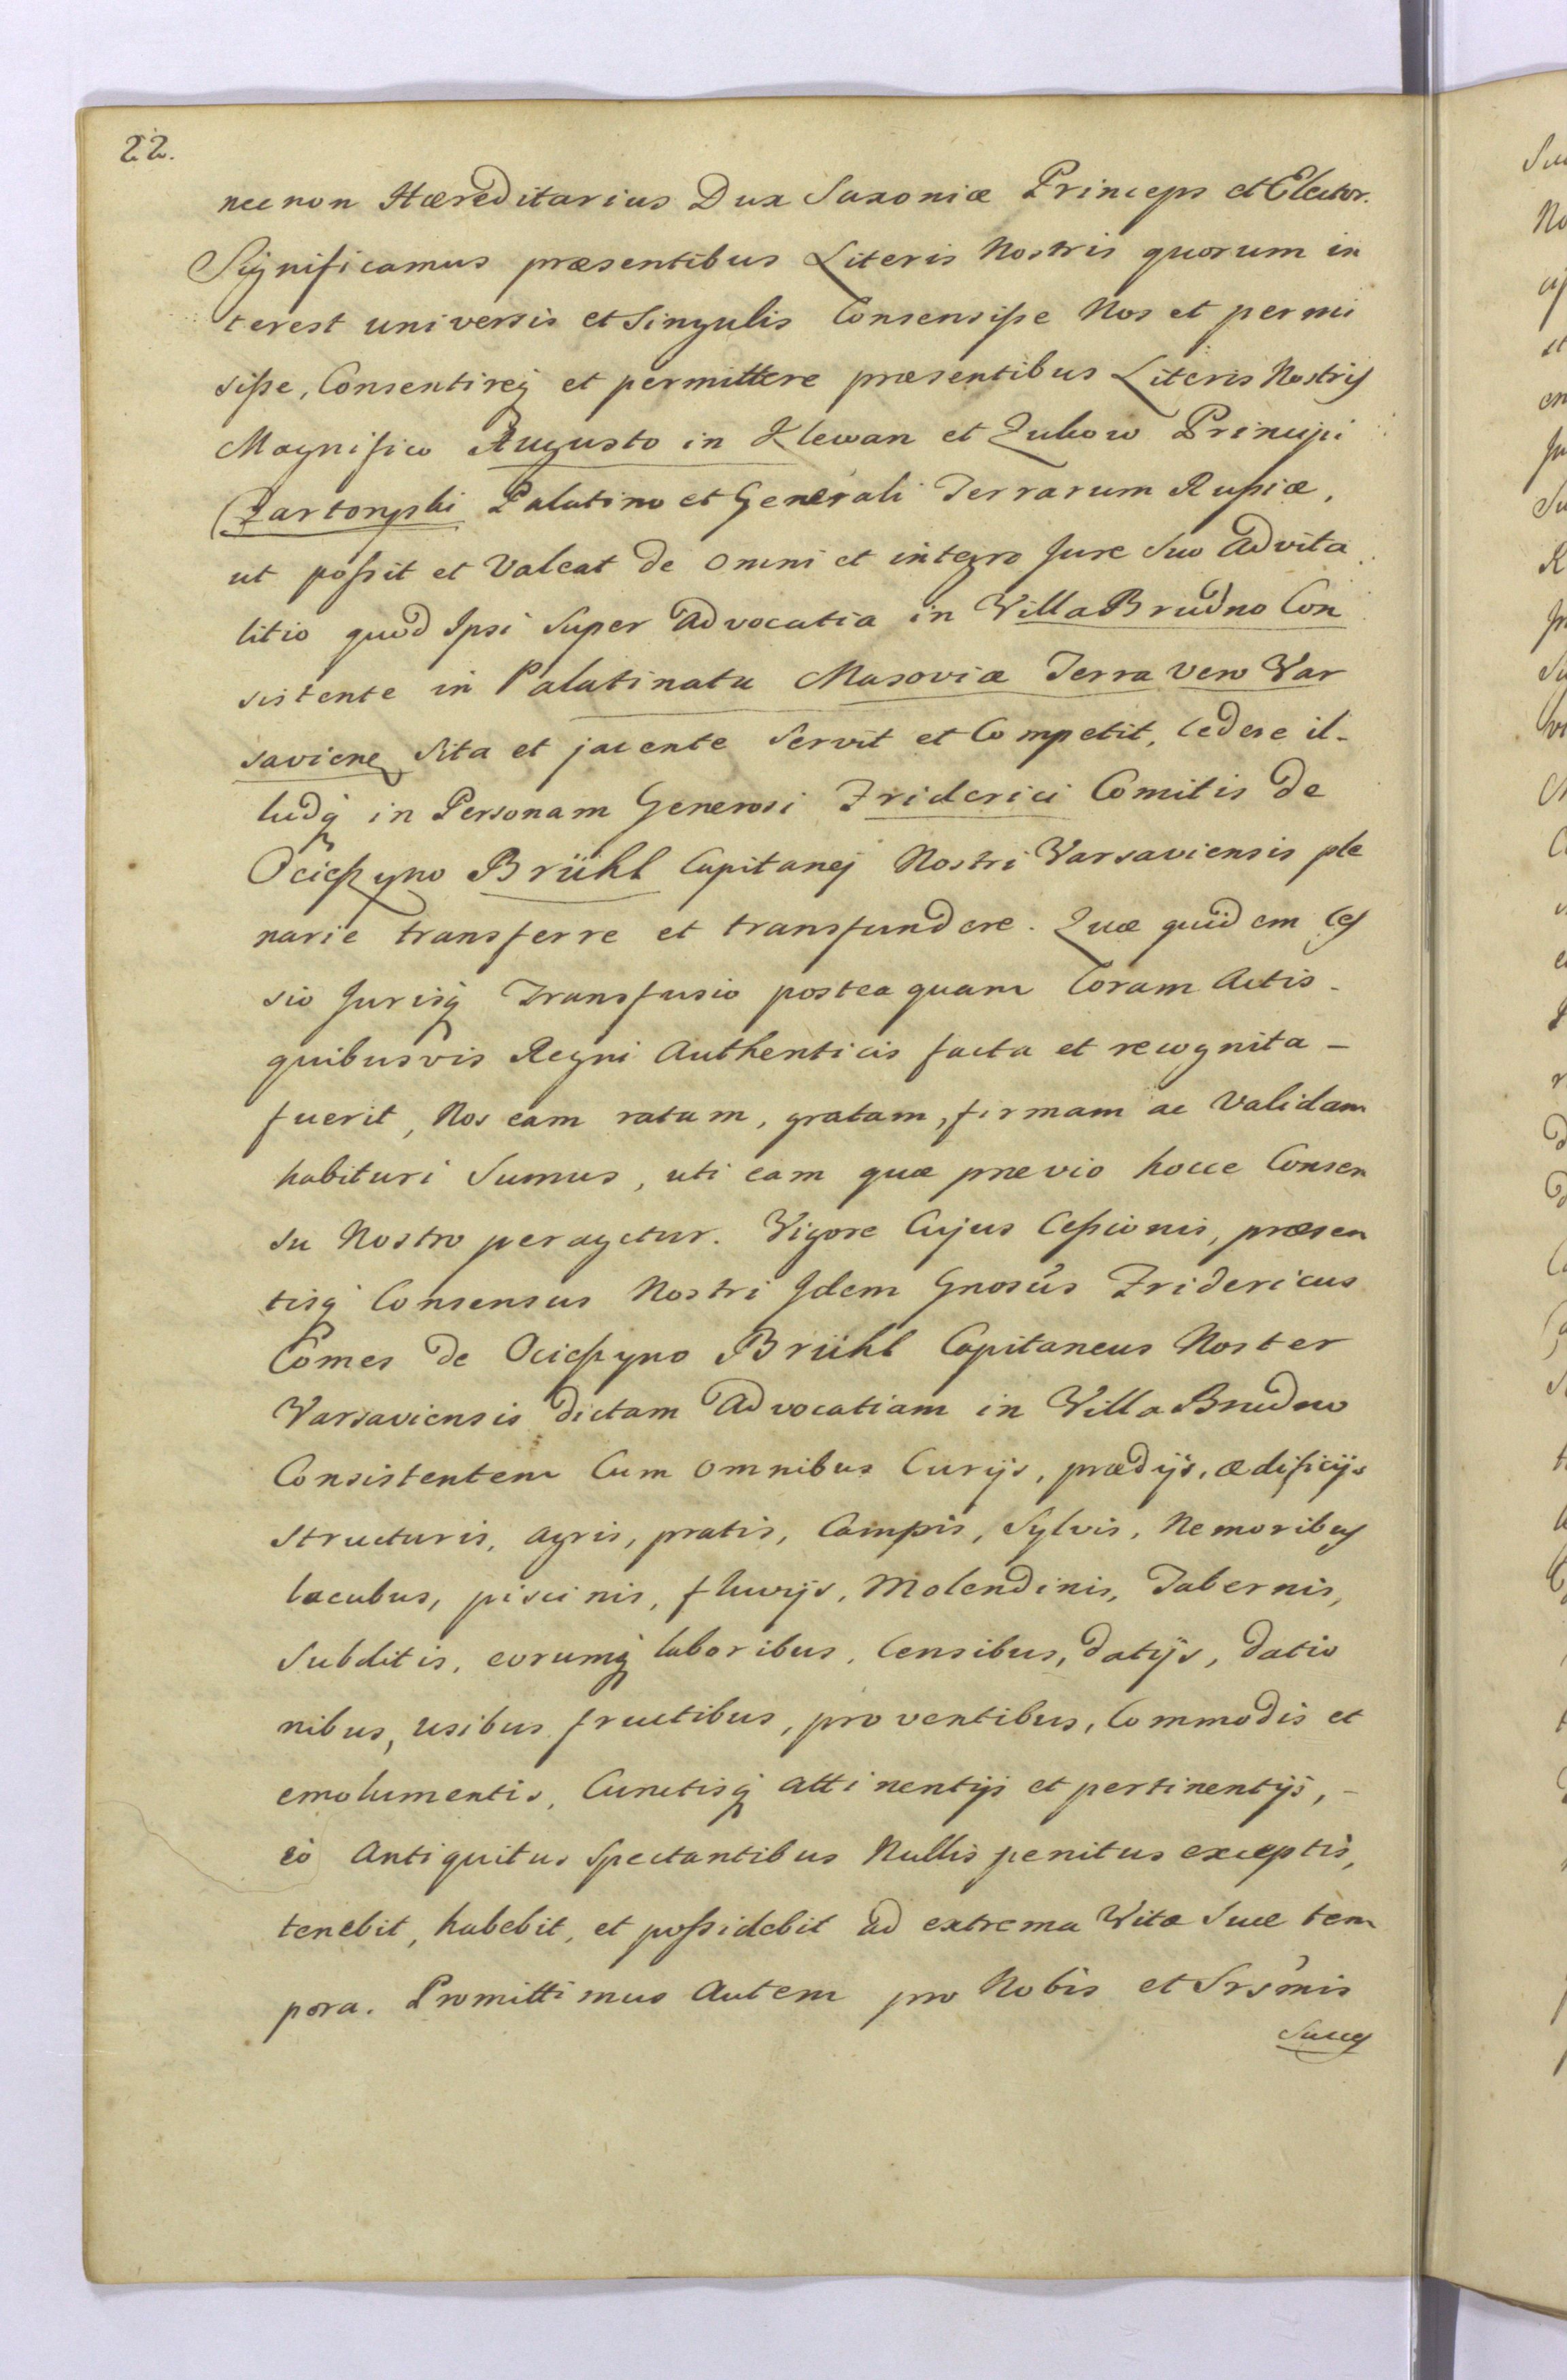 22.
nec non Hæreditarius Dux Saxoniæ Princeps et Elector.
Significamus præsentibus Literis Nostris quorum in
terest universis et Singulis Consensiſse Nos et permi
siſse, Consentireq̃ et permittere præsentibus Literis Nostris
Magnifico Augusto in Klewan et Zukow Principi
Czartoryſki Palatino et Generali Terrarum Ruſsiæ,
ut poſsit et Valeat de omni et integro Jure Suo Advita
litio quod Ipsi Super Advocatia in Villa Brudno Con
sistente in Palatinatu Masoviæ Terra vero Var
saviene Sita et jacente Servit et Competit, Cedere il-
ludq̃ in Personam Generosi Friderici Comitis de
Ocieſzyno Brühl Capitanej Nostri Varsaviensis ple
narie transferre et transfundere. Quæ quidem Ces
sio Jurisq̃ Transfusio postea quam Coram Actis -
quibusvis Regni Authenticis facta et recognita -
fuerit, Nos eam ratam, gratam, firmam ac Validam
habituri Sumus, uti eam quæ prævio hocce Consen
su Nostro peragetur. Vigore Cujus Ceſsionis, præsen
tisq̃ Consensus Nostri Idem Gnosus Fridericus
Comes de Ocieſzyno Brühl Capitaneus Noster
Varsaviensis dictam Advocatiam in Villa Brudno
Consistentem Cum omnibus Curijs, prædijs, ædificijs
structuris, agris, pratis, Campis, Sylvis, Nemoribus
lacubus, piscinis, fluvijs, Molendinis, Tabernis,
Subditis, eorumq̃ laboribus, Censibus, datijs, datio
nibus, usibus fructibus, proventibus, Commodis et
emolumentis, Cunctisq̃ attinentijs et pertinentijs, -
eò Antiquitus Spectantibus Nullis penitus exceptis,
tenebit, habebit, et poſsidebit ad extrema Vitæ Suæ tem
pora. Promittimus Autem pro Nobis et Srsmis
Succes